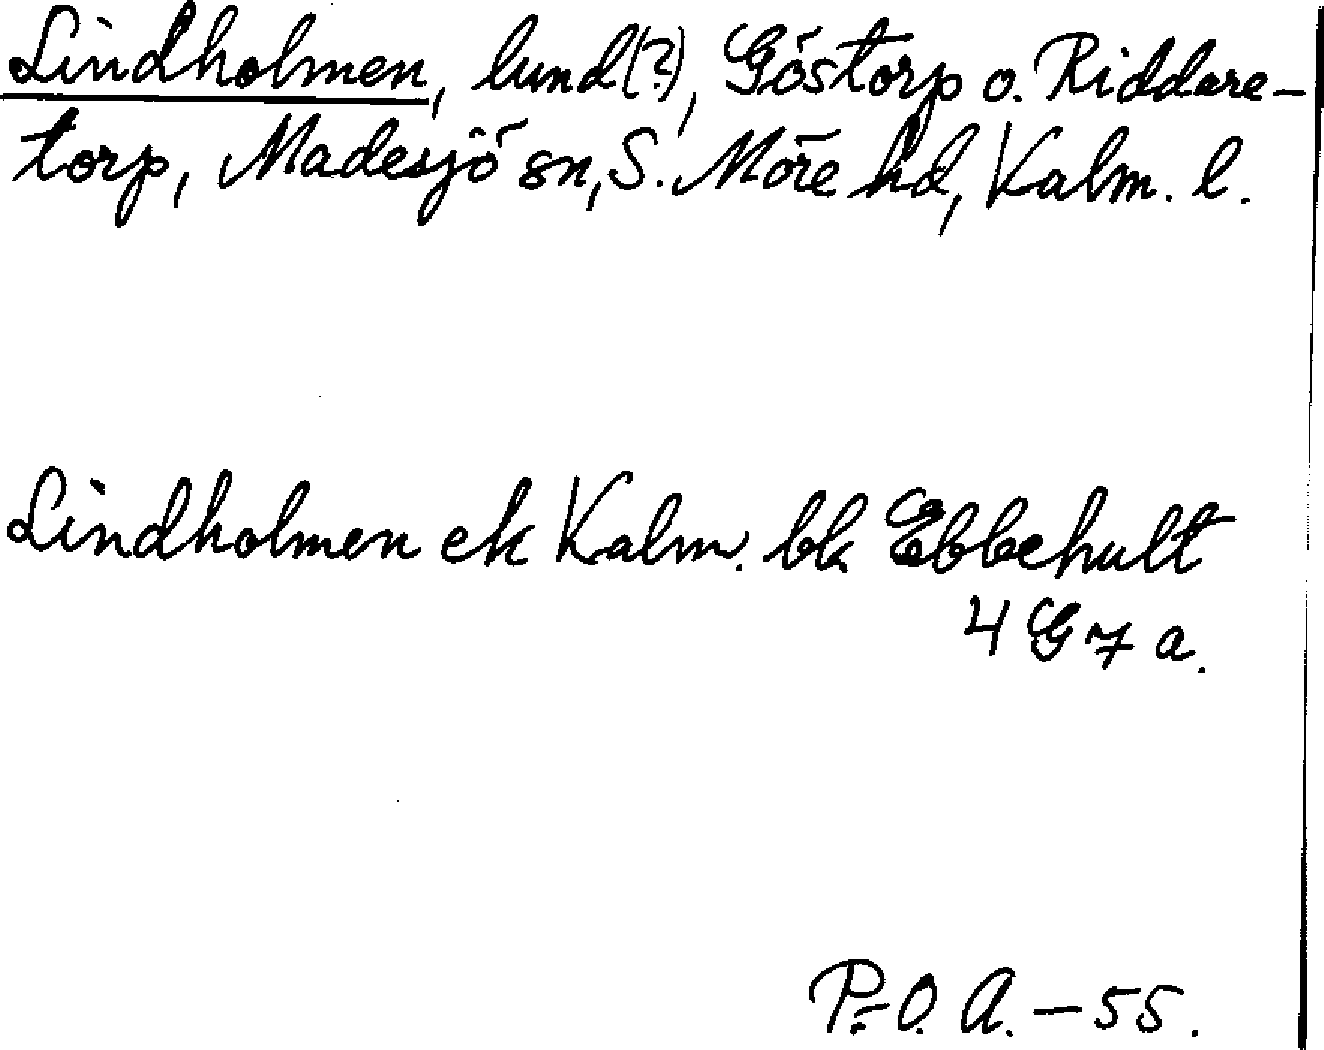 Lindholmen, lund(?), Göstorp o. Riddare-
torp, Madesjö sn, S. Möre hd, Kalm. l.
Lindholmen ek Kalm. bl. Ebbehult
4 G 7 a.
P.-O. A. - 55.